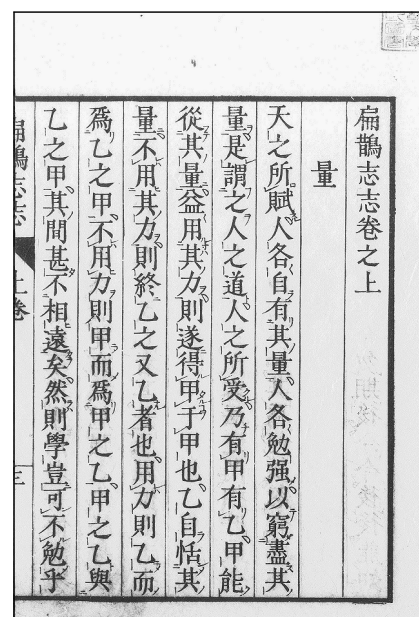 扁鵲志志卷之上
量
天之所賦人各自有其量人各勉强以窮盡其
量是謂之人之道人之所受乃有甲有乙甲能
從其量益用其力則遂得甲于甲也乙自恬其
量不用其力則終乙之又乙者也用力則乙而
爲乙之甲不用力則甲而爲甲之乙甲之乙與
乙之甲其間甚不相遠矣然則學豈可不勉乎
扁鵲志志 上卷 三